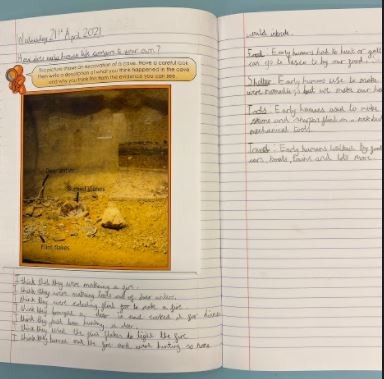 Wednesday 21st April 2021
How does early human life compare to your own?
This picture shows an excavation of a cave. Have a careful look
then write a description of what you think happened in the cave
and why you think this from the evidence you can see.
Deer antler
Burned stones
Flint flakes
I think that they were making a fire.
I think they were making tools out of deer antlers.
I think they were collecting flint for to make a fire.
I think they bought a deer in and cooked it for dinner
I think they had been hunting a deer.
I think they used the flint flakes to light the fire
I think they burned out the fire and went hunting so more
would
Food: Early humans had to hunt or
can go to to buy our food.
Shelter: Early humans use to make
were nomadic, but we make our
Tools: Early humans used to make
stone and flint
mechanical tools.
Travel: Early humans walked by
cars, boats, trains and lots more.